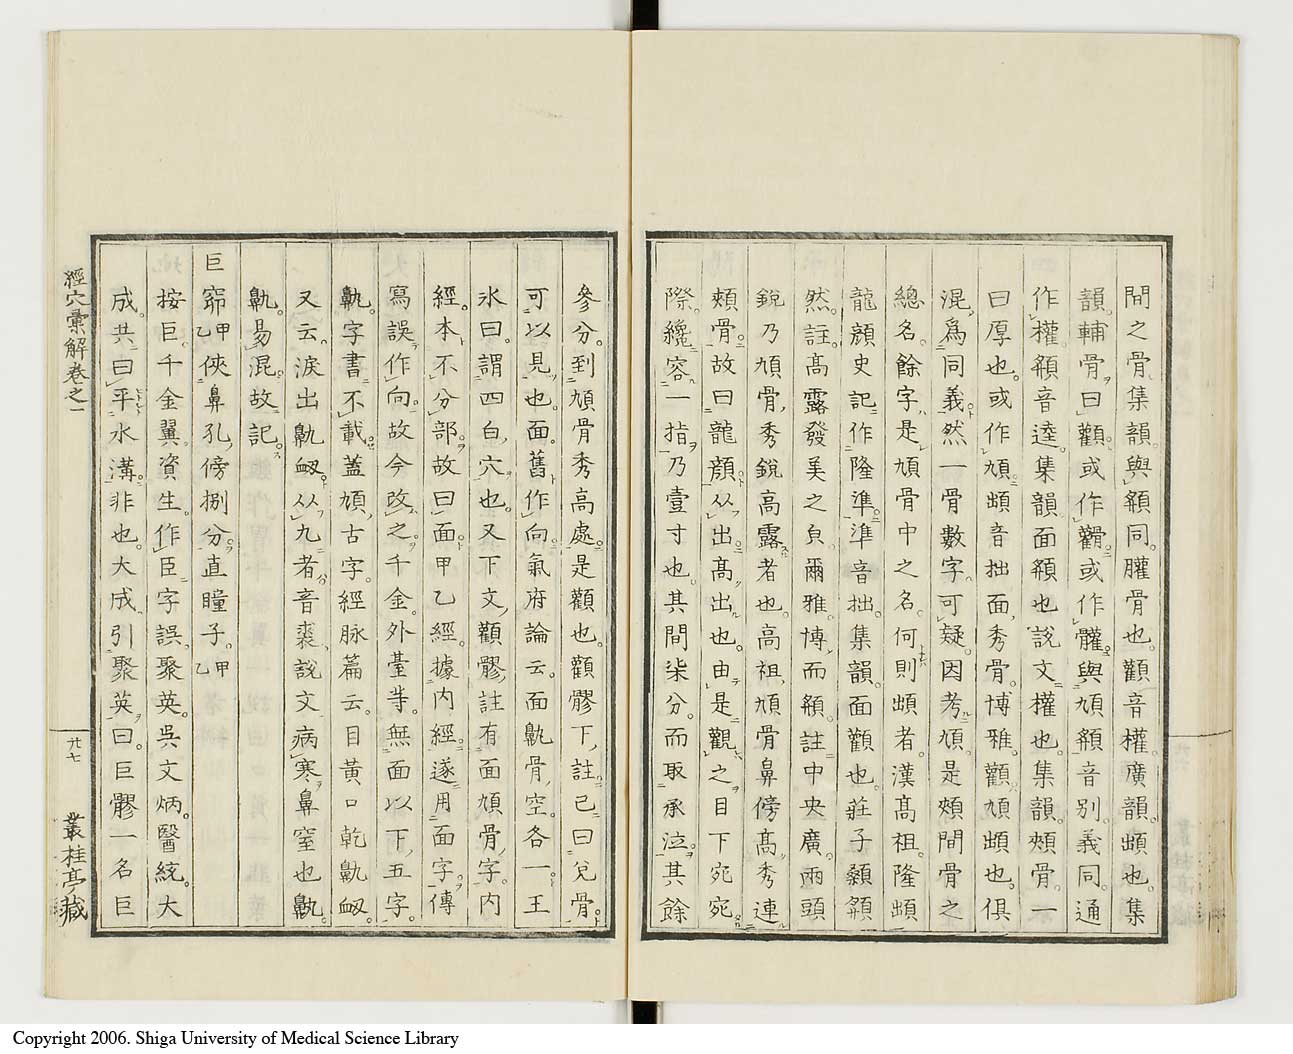 間之骨集韻與額同臞骨也顴音權廣韻䪼也集
韻輔骨曰顴或作䶭或作髖與頄額音別義同通
作權額音逵集韻面額也說文權也集韻頰骨一
曰厚也或作頄䪼音拙面秀骨博雅顴頄䪼也俱
混爲同義然一骨數字可疑因考頄是頰間骨之
總名餘字是頄骨中之名何則䪼者漢髙祖隆䪼
龍顔史記作隆準準音拙集韻面顴也莊子顙頯
然註髙露發美之皃爾雅博而頯註中央廣兩頭
銳乃頄骨秀銳高露者也高祖頄骨鼻傍髙秀連
頰骨故曰龍顔从出髙出也由是觀之目下宛宛
際纔容一指乃壹寸也其間柒分而取承泣其餘
參分到頄骨秀高處是顴也顴髎下註已曰兌骨
可以見也面舊作向氣府論云面鼽骨空各一王
氷曰謂四白穴也又下文顴髎註有面頄骨字内
經本不分部故曰面甲乙經據内經遂用面字傳
寫誤作向故今改之千金外臺等無面以下五字
鼽字書不載蓋頄古字經脉篇云目黃口乾鼽衂
又云淚出鼽衂从九者音裘說文病寒鼻窒也鼽
鼽易混故記
巨窌甲乙俠鼻孔傍捌分直瞳子甲乙
按巨千金翼資生作臣字誤聚英吳文炳醫統大
成共曰平水溝非也大成引聚英曰巨髎一名巨
經穴彙解卷之一
廿七
叢桂亭藏
Copyright 2006. Shiga University of Medical Science Library